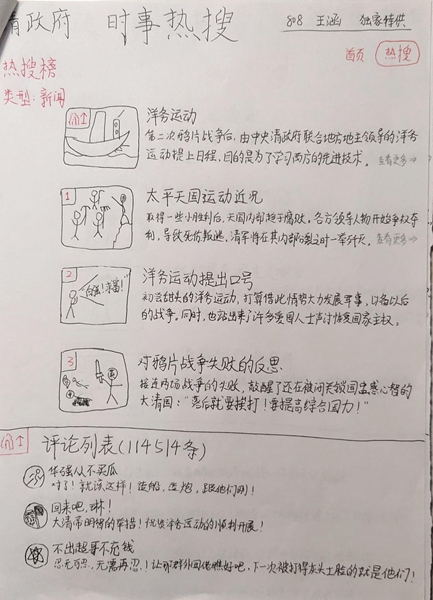 清政府 时事热搜 808 王涵 独家特供
首页 热搜
热搜榜
类型:新闻
洋务运动
第二次鸦片战争后,由中央清政府联合地方地主领导的洋务
运动提上日程,目的是为了学习西方的先进技术。查看更多⇒
1 太平天国运动近况
取得一些小胜利后,天国内部趋于腐败。各方领导人物开始争权夺
利,导致死伤叛逃,清军将在其内部混乱之时一举歼灭。查看更多⇒
2 洋务运动提出口号
"自强!求富!"
初尝甜头的洋务运动,打算借此情势大力发展军事,以备以后
的战争。同时,也站出来了许多爱国人士声讨恢复国家主权。
3 对鸦片战争失败的反思
接连两场战争的失败,敲醒了还在被闭关锁国蛊惑心智的
大清国:"落后就要挨打!要提高综合国力!"
评论列表(114514条)
华强从不买瓜
对了!就该这样!造船,造炮,跟他们刚!
回来吧,琳!
大清帝明智的举措!祝贺洋务运动的顺利开展!
不出超勇不充钱
忍无可忍,无需再忍!让那群外国佬瞧好吧,下一次被打得灰头土脸的就是他们!